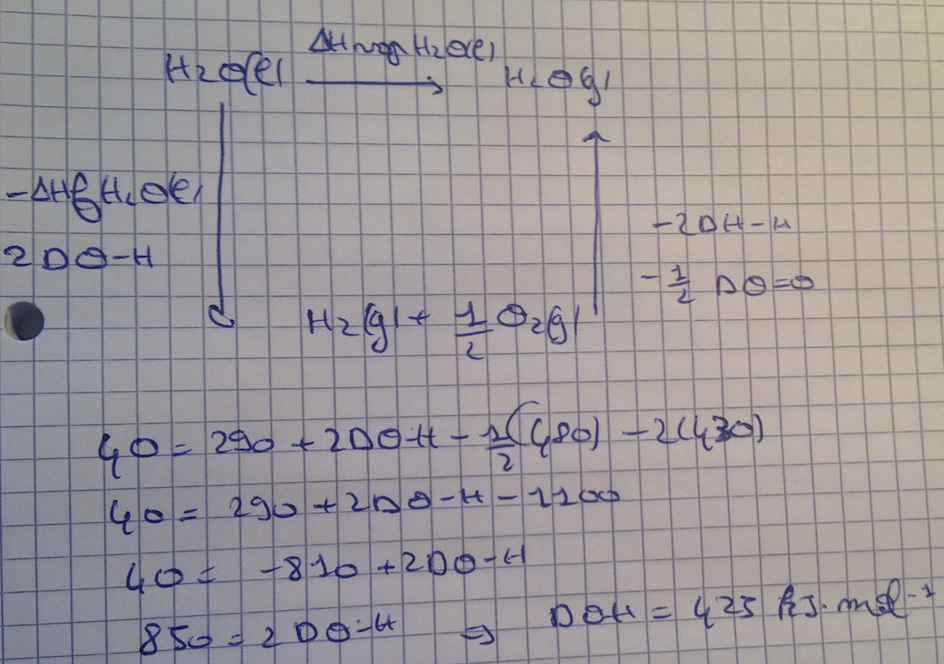 ΔHvap H2O(l)
H2O(l) → H2O(g)
-ΔHf H2O(l)
2DO-H
-2DH-H
-1/2 DO=O
H2(g) + 1/2 O2(g)
40 = 290 + 2DO-H - 1/2(480) - 2(430)
40 = 290 + 2DO-H - 1100
40 = -810 + 2DO-H
850 = 2DO-H ⇒ DOH = 425 kJ.mol⁻¹